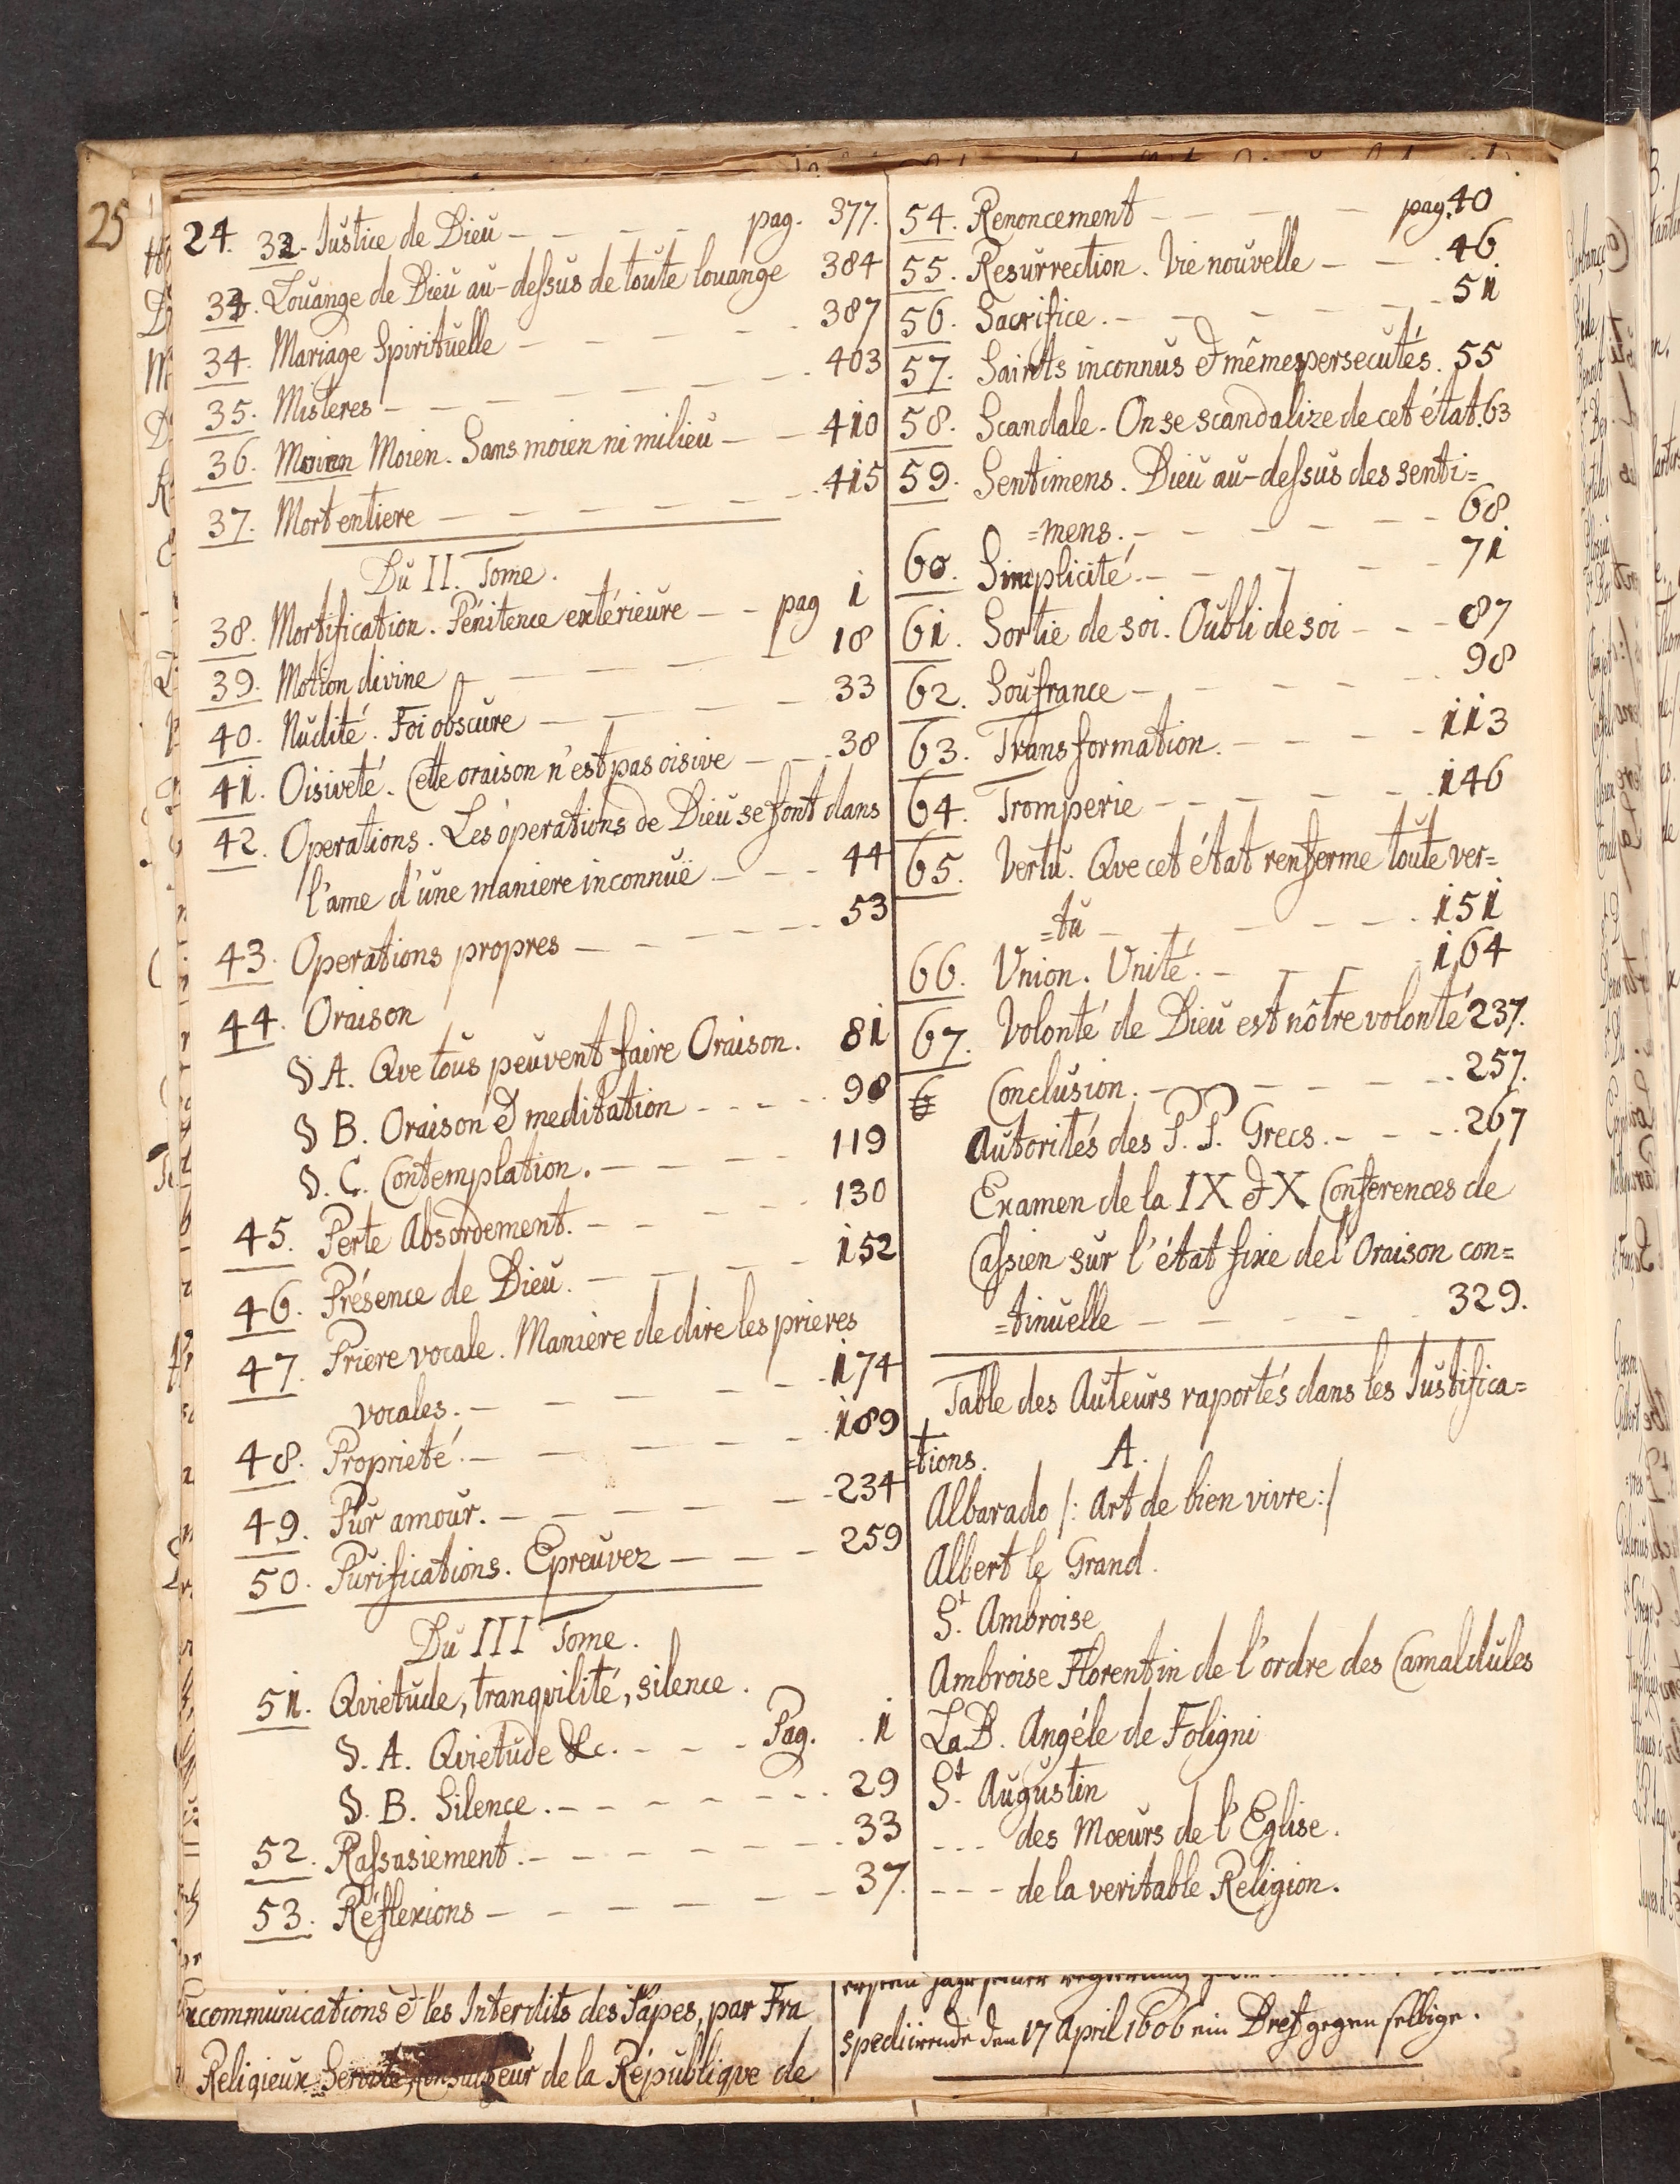 25
24. 32. Iustice de Dieu - - - - pag. 377.
33. Louange de Dieu au-dessus de toute louange 384
34. Mariage Spirituelle - - - - 387
35. Misteres - - - - - - 403
36. Moien Moien. Sans moien ni milieu - - 410
37. Mort entiere - - - - - - 415
Du II. Tome.
38. Mortification. Pénitence extérieure - - pag 1
39. Motion divine - - - - 18
40. Nudité. Foi obscure - - - - 33
41. Oisiveté. Cette oraison n'est pas oisive - - 38
42. Operations. Les óperations de Dieu se font dans
l'ame d'une maniere inconnuë - - - 44
43. Operations propres - - - - - - 53
44. Oraison
§ A. Que tous peuvent faire Oraison. 81
§ B. Oraison & meditation - - - - 98
§. C. Contemplation. - - - - - 119
45. Perte Absordement. - - - - - 130
46. Présence de Dieu. - - - - - 152
47. Priere vocale. Maniere de dire les prieres
vocales. - - - - - - 174
48. Proprieté. - - - - - - 189
49. Pur amour. - - - - - - 234
50. Purifications. Epreuvez - - - - 259
Du III Tome.
51. Quietude, tranquilité, silence.
§. A. Quietude &c. - - - Pag. 1
§. B. Silence. - - - - - - - 29
52. Rassasiement. - - - - - - 33
53. Réflexions - - - - - - 37.
54. Renoncement - - - - pag. 40
55. Resurrection. Vie nouvelle - - - 46
56. Sacrifice. - - - - - - 51
57. Saints inconnus & mêmes persecutés. 55
58. Scandale. On se scandalize de cet état. 63
59. Sentimens. Dieu au-dessus des senti=
=mens. - - - - - - 68.
60. Simplicité. - - - - - 71
61. Sortie de soi. Oubli de soi - - - 87
62. Soufrance - - - - - - 98
63. Transformation. - - - - - 113
64. Tromperie - - - - - - 146
65. Vertu. Que cet état renferme toute ver=
=tu - - - - - 151
66. Union. Unité. - - - - 164
67. Volonté de Dieu est nôtre volonté 237.
6 Conclusion. - - - - - - 257.
Autorités des P. P. Grecs. - - - - 267
Examen de la IX & X Conferences de
Cassien sur l'état fixe de l'Oraison con=
=tinuelle - - - - - 329.
Table des Auteurs raportés dans les Iustifica=
=tions. A.
Albarado /: Art de bien vivre :/
Albert le Grand.
St. Ambroise
Ambroise Florentin de l'ordre des Camaldules
La B. Angéle de Foligni
St. Augustin
- - - des Mœurs de l'Eglise.
- - - de la veritable Religion.
xcommunications & les Interdits des Papes, par Fra
Religieux Servite, Consulteur de la République de
spediirende den 17 April 1606 ein Bref gegen selbige.